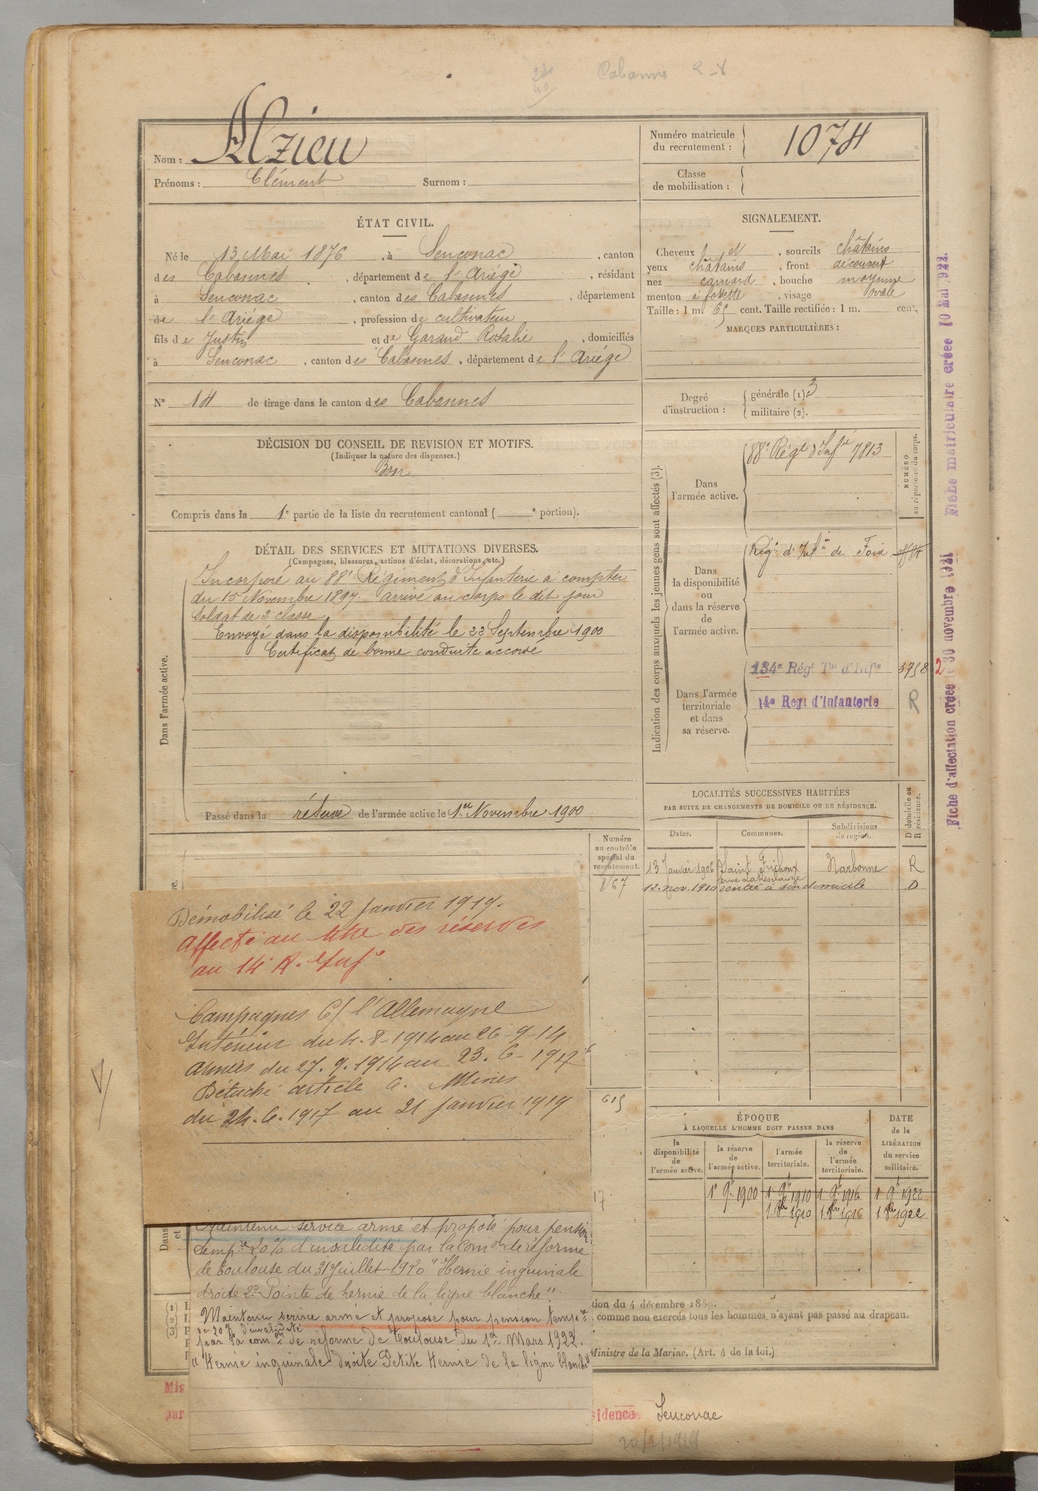 Cabannes
Nom : Alzieu
Prénoms : Clément Surnom :
Numéro matricule
du recrutement : 1074
Classe
de mobilisation :
ÉTAT CIVIL.
Né le 13 Mai 1876, à Senconac, canton
des Cabannes, département de l'Ariège, résidant
à Senconac, canton des Cabannes, département
de l'Ariège, profession de cultivateur
fils de Justin et de Garaud Rosalie, domiciliés
à Senconac, canton des Cabannes, département de l'Ariège
N° 14 de tirage dans le canton des Cabannes
SIGNALEMENT.
Cheveux et, sourcils châtains
yeux châtains, front découvert
nez camard, bouche moyenne
menton à fossette, visage ovale
Taille : 1 m. 65 cent. Taille rectifiée : 1 m. cent.
MARQUES PARTICULIÈRES :
Degré
d'instruction :
générale (1) 3
militaire (2).
DÉCISION DU CONSEIL DE REVISION ET MOTIFS.
(Indiquer la nature des dispenses.)
Bon
Compris dans la 1e partie de la liste du recrutement cantonal ( e portion).
DÉTAIL DES SERVICES ET MUTATIONS DIVERSES.
(Campagnes, blessures, actions d'éclat, décorations, etc.)
Dans l'armée active.
Incorporé au 88e Régiment d'Infanterie à compter
du 15 Novembre 1897. arrivé au corps le dit jour
soldat de 2e classe
Envoyé dans la disponibilité le 22 Septembre 1900
Certificat de bonne conduite accordé
Passé dans la réserve de l'armée active le 1er Novembre 1900
Indication des corps auxquels les jeunes gens sont affectés (3).
NUMÉRO
au répertoire du corps.
Dans
l'armée active.
88e Régt d'Infie 7813
Dans
la disponibilité
ou
dans la réserve
de
l'armée active.
Régt d'Infie de Foix
Dans l'armée
territoriale
et dans
sa réserve.
134e Régt Tal d'Infie
14e Regt d'Infanterie R
Fiche d'affectation créée 30 novembre 1921
Fiche matriculaire créée 10 mai 1922.
LOCALITÉS SUCCESSIVES HABITÉES
PAR SUITE DE CHANGEMENTS DE DOMICILE OU DE RÉSIDENCE.
D domicile ou
R résidence.
Dates. Communes. Subdivisions
de région.
13 Janvier 1906 Saint Frichoux Narbonne R
12 nov. 1910 rentré à son domicile D
Numéro
au contrôle
spécial du
recrutement.
867
615
Démobilisé le 22 Janvier 1919.
Affecté au titre des réserves
au 14e R. Infie
Campagnes C/ l'Allemagne
Intérieur du 4-8-1914 au 26-9-14
Armées du 27.9.1914 au 23.6-1917
Détaché article 6. Mines
du 24.6.1917 au 21 janvier 1919
ÉPOQUE
À LAQUELLE L'HOMME DOIT PASSER DANS
la
disponibilité
de
l'armée active.
la réserve
de
l'armée active.
l'armée
territoriale.
la réserve
de
l'armée
territoriale.
DATE
de la
LIBÉRATION
du service
militaire.
1 9e 1900 1 9e 1910 1 9e 1916 1 9e 1922
1 8e 1910 1 8e 1916 1 8e 1922
Dans
et
Maintenu service armé et proposé pour pension
tempre 20% d'invalidité par la Comon de réforme
de Toulouse du 31 Juillet 1920 "Hernie inguinale
droite 2° Pointe de hernie de la ligne blanche".
Maintenu service armé et proposé pour pension tempre
à 20% d'invalidité
par la comon de réforme de Toulouse du 1er Mars 1922.
"Hernie inguinale droite Petite Hernie de la ligne blanche"
tion du 4 décembre 1889.
comme non exercés tous les hommes n'ayant pas passé au drapeau.
Ministre de la Marine. (Art. 4 de la loi.)
Mis
par
sidence Senconac